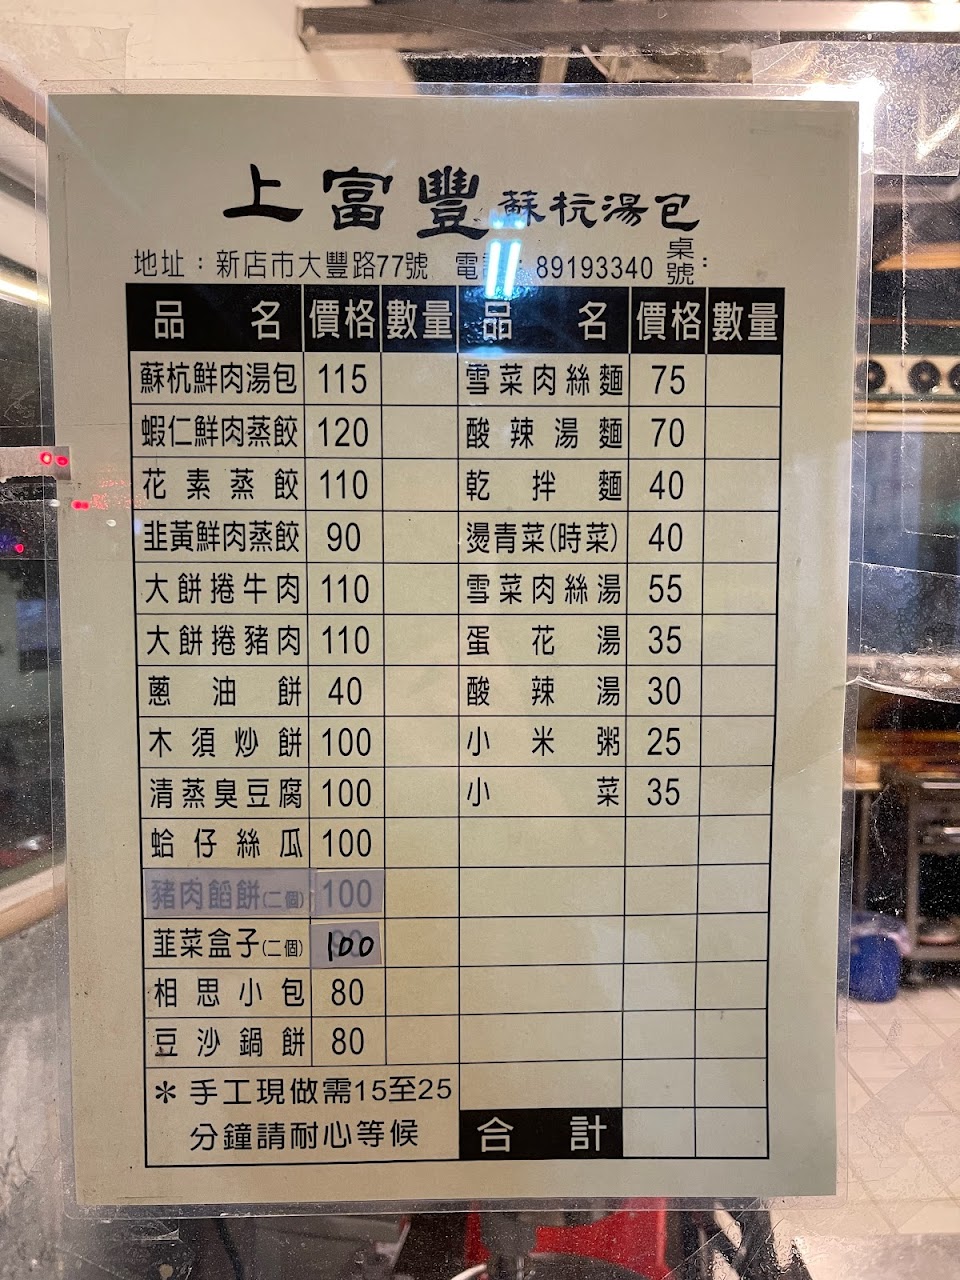 上富豐 蘇杭湯包
地址：新店市大豐路77號 電 : 89193340 桌號：
品名 價格 數量 品名 價格 數量
蘇杭鮮肉湯包 115 雪菜肉絲麵 75
蝦仁鮮肉蒸餃 120 酸辣湯麵 70
花素蒸餃 110 乾拌麵 40
韭黃鮮肉蒸餃 90 燙青菜(時菜) 40
大餅捲牛肉 110 雪菜肉絲湯 55
大餅捲豬肉 110 蛋花湯 35
蔥油餅 40 酸辣湯 30
木須炒餅 100 小米粥 25
清蒸臭豆腐 100 小菜 35
蛤仔絲瓜 100
豬肉餡餅(二個) 100
韭菜盒子(二個) 100
相思小包 80
豆沙鍋餅 80
＊手工現做需15至25
分鐘請耐心等候
合計